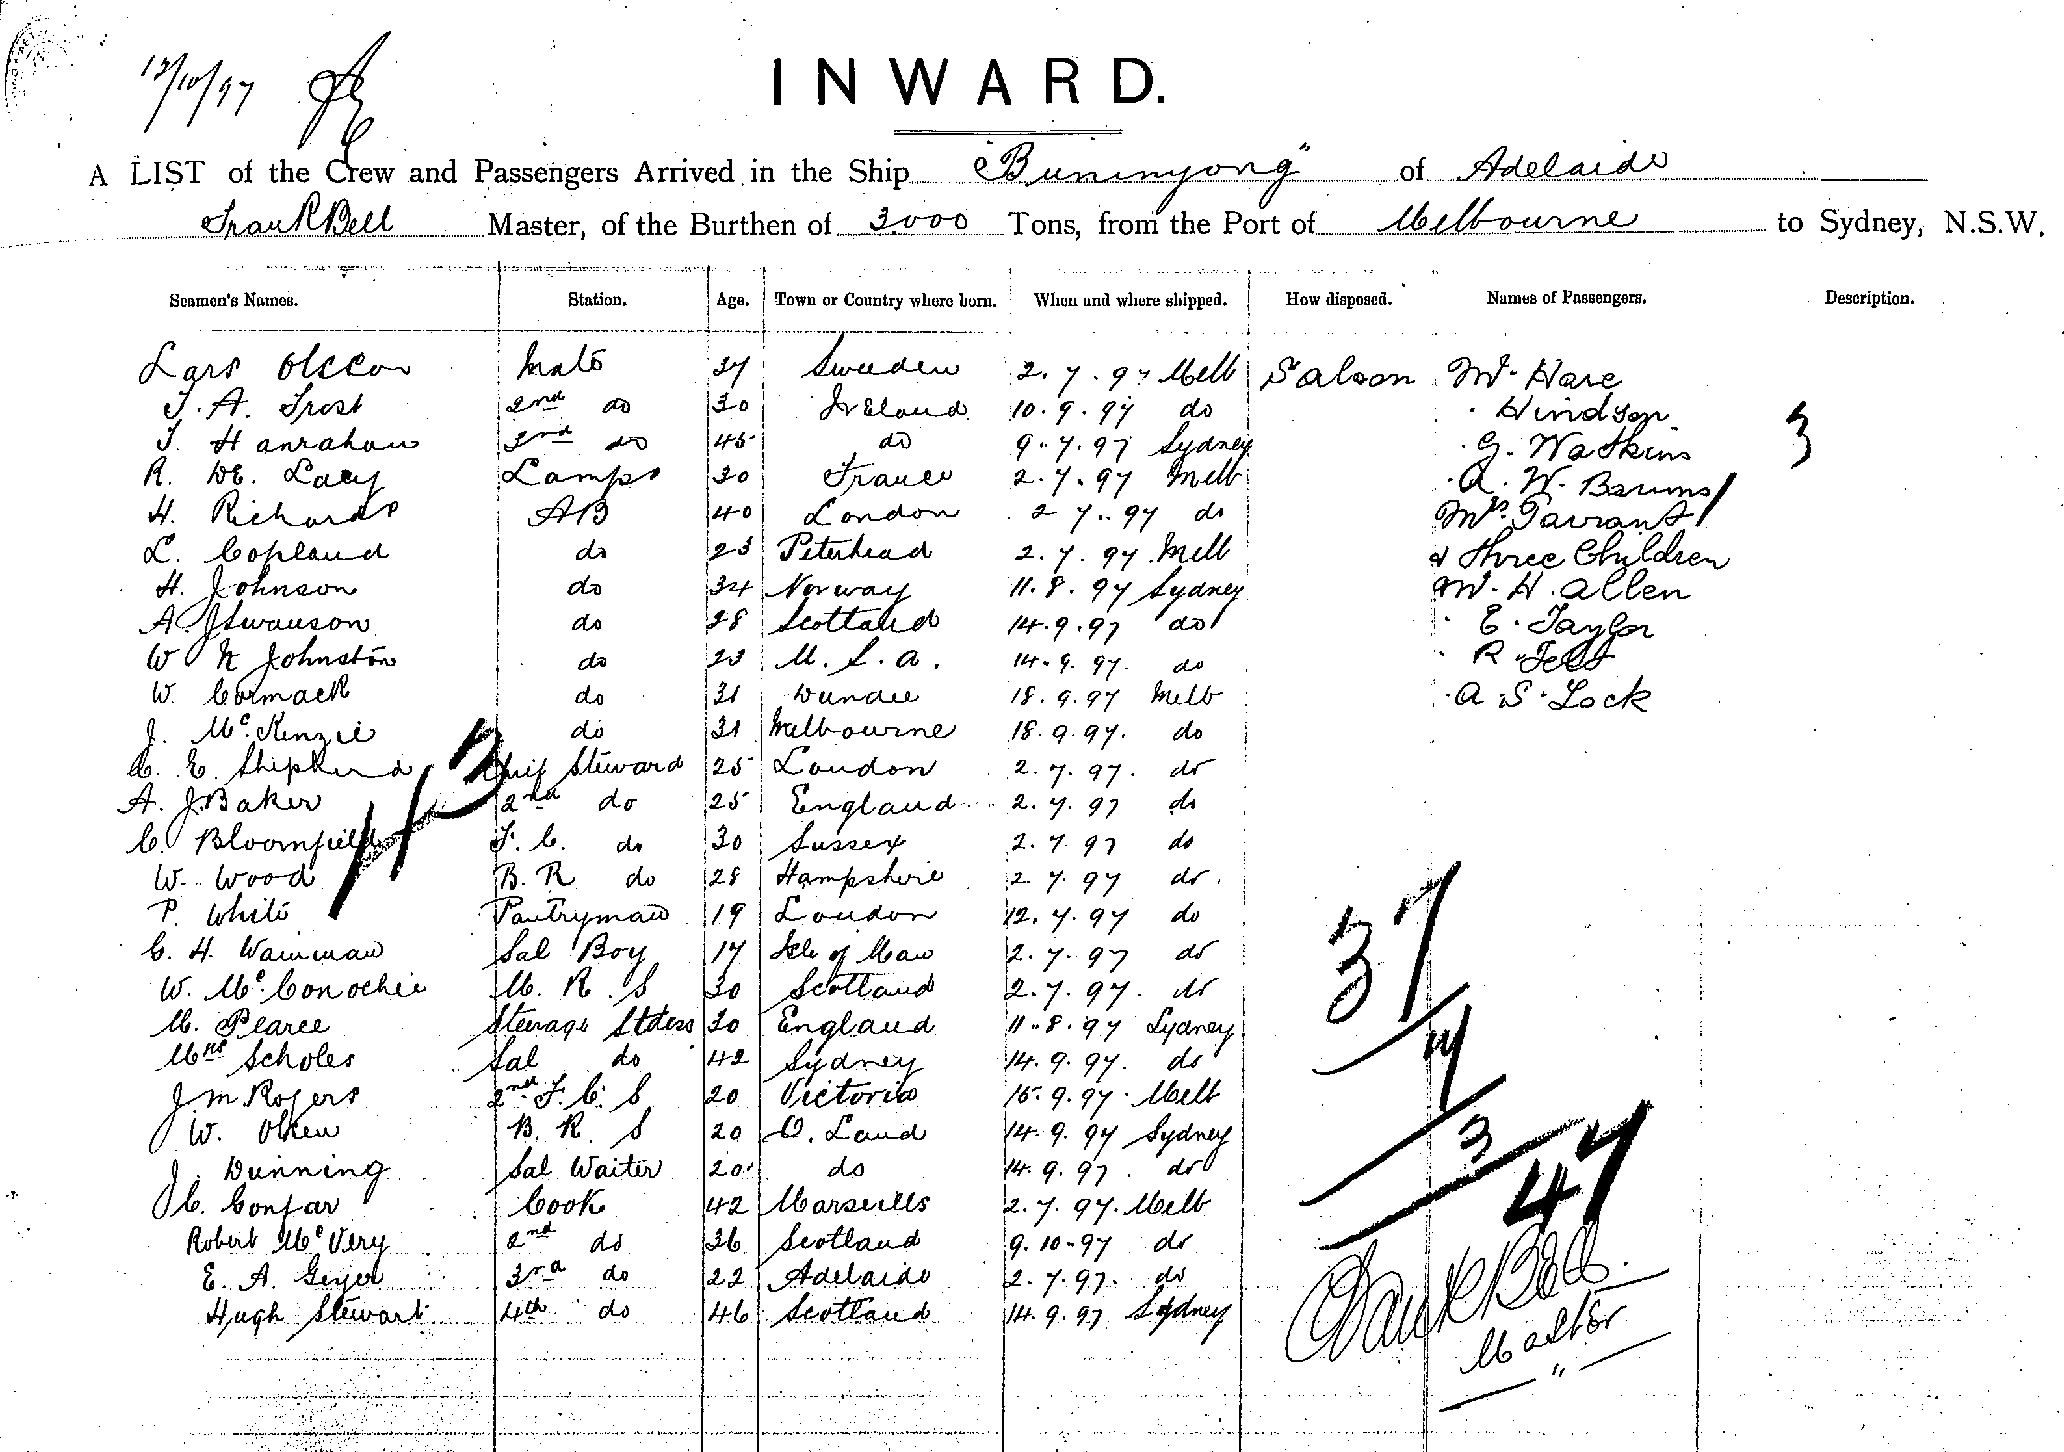 12/10/97
INWARD.
A LIST of the Crew and Passengers Arrived in the Ship "Buninyong" of Adelaide
Frank Bell Master, of the Burthen of 3000 Tons, from the Port of Melbourne to Sydney, N.S.W.
Seamen's Names. Station. Age. Town or Country where born. When and where shipped. How disposed. Names of Passengers. Description.
Lars Mate 37 Sweden 2.7.97 Melb Saloon Mr Hare
T. A. Frost 2nd do 30 Ireland 10.9.97 do " Hindson
T. Hanrahan 3rd do 45 do 9.7.97 Sydney " G. Watkins 3
R. DE. Lacy Lamps 30 France 2.7.97 Melb " A. W. Barnes
H. Richards AB 40 London 2 7.97 do Mrs Tarrant
L. Copland do 23 Peterhead 2.7.97 Melb & Three Children
H. Johnson do 34 Norway 11.8.97 Sydney Mr. H. Allen
A. J Swanson do 28 Scotland 14.9.97 do " E. Taylor
W N Johnston do 23 U. S. A. 14.9.97. do " R
W. Cormack do 31 Dundee 18.9.97 Melb " A. S. Lock
J. Mc.Kenzie do 31 Melbourne 18.9.97. do
C. E. Shipherd Chief Steward 25 London 2.7.97. do
A. J. Baker 2nd do 25 England 2.7.97 do
C. Bloomfield F. C. do 30 Sussex 2.7.97 do
W. Wood B. R do 28 Hampshire 2 7.97 do.
P. White Pantryman 19 London 12.7.97 do
C. H. Wainman Sal Boy 17 Isle of Man 2.7.97 do
W. Mc.Conochie M. R. S 30 Scotland 2.7.97. do
M. Pearce Steerage Stdess 30 England 11.8.97 Sydney
Mrs Scholes Sal do 42 Sydney 14.9.97. do
J. M. Rogers 2nd F. C. S 20 Victoria 15.9.97. Melb
W. B. R. S 20 Q. Land 14.9.97 Sydney
J. Dunning Sal Waiter 20 do 14.9.97. do
J C. Confar Cook 42 Marseilles 2.7.97. Melb
Robert McVery 2nd do 36 Scotland 9.10.97 do
E. A. Geyer 3rd do 22 Adelaide 2.7.97. do
Hugh Stewart 4th do 46 Scotland 14.9.97 Sydney
37
3
47
Frank Bell
Master